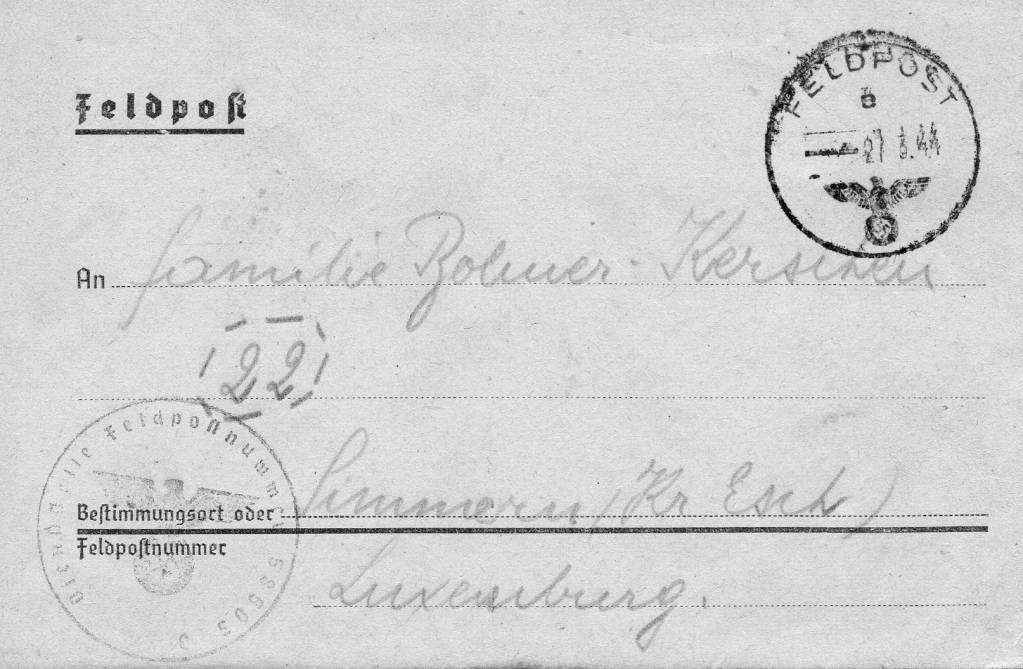 Feldpost
FELDPOST
b
27 3.44
An familie Bohmer-Kerschen
22
Dienststelle Feldpostnummer
Bestimmungsort oder Simmern (Kr Esch)
Feldpostnummer
Luxemburg.